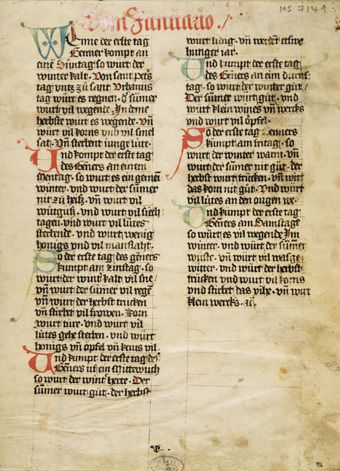 MS 7141
Vom Januario.
Wenne der erste tag
Genner kompt an
eine Suntag so wurt der
winter kalt. Von sant peters
tag untz zu sant Urbanus
tag wurt es regnen. d sumer
wurt vil wegende. In dem
herbste wurt es wegende. vñ
wurt vil korns vnd vil snel
sat. Vñ sterbent iunge lüte.
Und kompt der erste tag
des Geners an einem
Mentag. so wurt es ein gemein
winter. vnd wurt der sumer
nüt zu heis. vñ wurt vil
vnd wurt vil siech
tagen. vnd wurt vil lütes
sterbende. vnd wurt wenig
honigs vnd vil manslaht.
So der erste tag des geners
kumpt am zinstag. so
wurt der wint kalt. vil sne
vñ wurt der sumer vil rege
vñ wurt der herbst trucken
vñ stirbet vil frowen. korn
wurt türe. vnd wurt vil
lütes gehe sterben. vnd wurt
honigs vñ öpfel vñ keins vil.
Und kumpt der erste tag des
Geners uf ein Mittewuch
so wurt der wint herte. Der
sumer wurt gut. der herbst
wurt lung. vñ werdet esswe
hunger iar.
Und kumpt der erste tag
des Geners an eim durns
tag. so wurt der winter gut.
Der sumer wurt gut. vnd
wurt klein wines vñ wercks
vnd wurt vil öpfel.
So der erste tag Genners
kumpt am fritag. so
wurt der winter warm. vñ
wurt der sumer nit gut. der
herbst wurt trucken. vñ wurt
das korn nit gut. vnd wurt
vil lütes an den ougen we.
Und kumpt der erste tag
Geners am Samstage
so wurt es vil wegende. In
winter. vnd wurt der sumer
wüste. vñ wurt vil
witter. vnd wurt der herbst
trucken vnd wurt vil korns
vnd stirbet das vihe. vñ wurt
klein wercks.